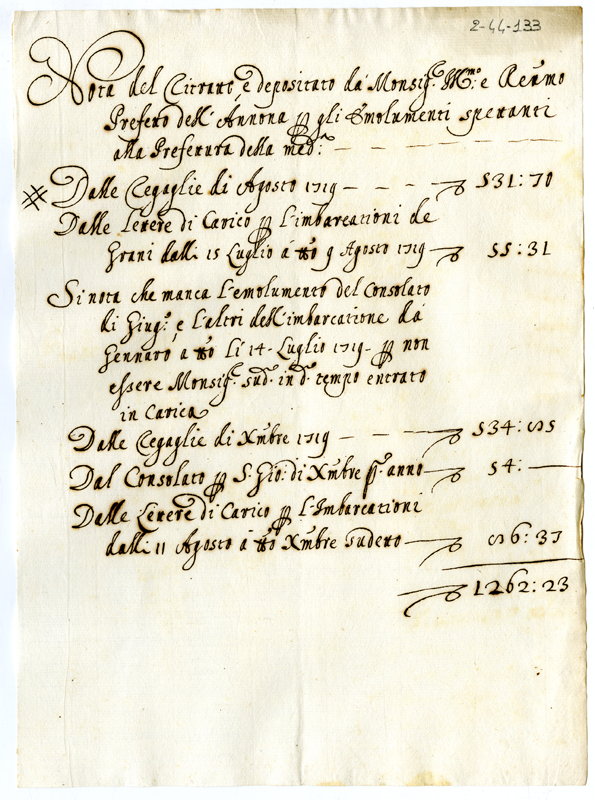 2-44-133
Nota del Ritratto, e depositato da Monsig.r Ill.mo e Reumo
Prefetto dell'Annona ꝑ gli Emolumenti spettanti
alla Prefettura della med.a — — — — —
Dalle Regaglie di Agosto 1719 — — — 531:70
Dalle Lettere di Carico ꝑ l'imbarcationi de
Grani dalli 15 Luglio à tto 9 Agosto 1719 — 55:31
Si nota che manca l'emolumento del Consolato
di Giug.o, e l'altri dell'imbarcatione dà
Gennaro, à tto li 14. Luglio 1719. ꝑ non
essere Monsig.r sud.o in d.o tempo entrato
in Carica
Dalle Regaglie di Xmbre 1719 — — — 534:85
Dal Consolato ꝑ S. Gio: di Xmbre ꝑ.o anno — 54:—
Dalle Lettere di Carico ꝑ l'Imbarcationi
dalli 11 Agosto à tto Xmbre sudetto — 86:37
1262:23